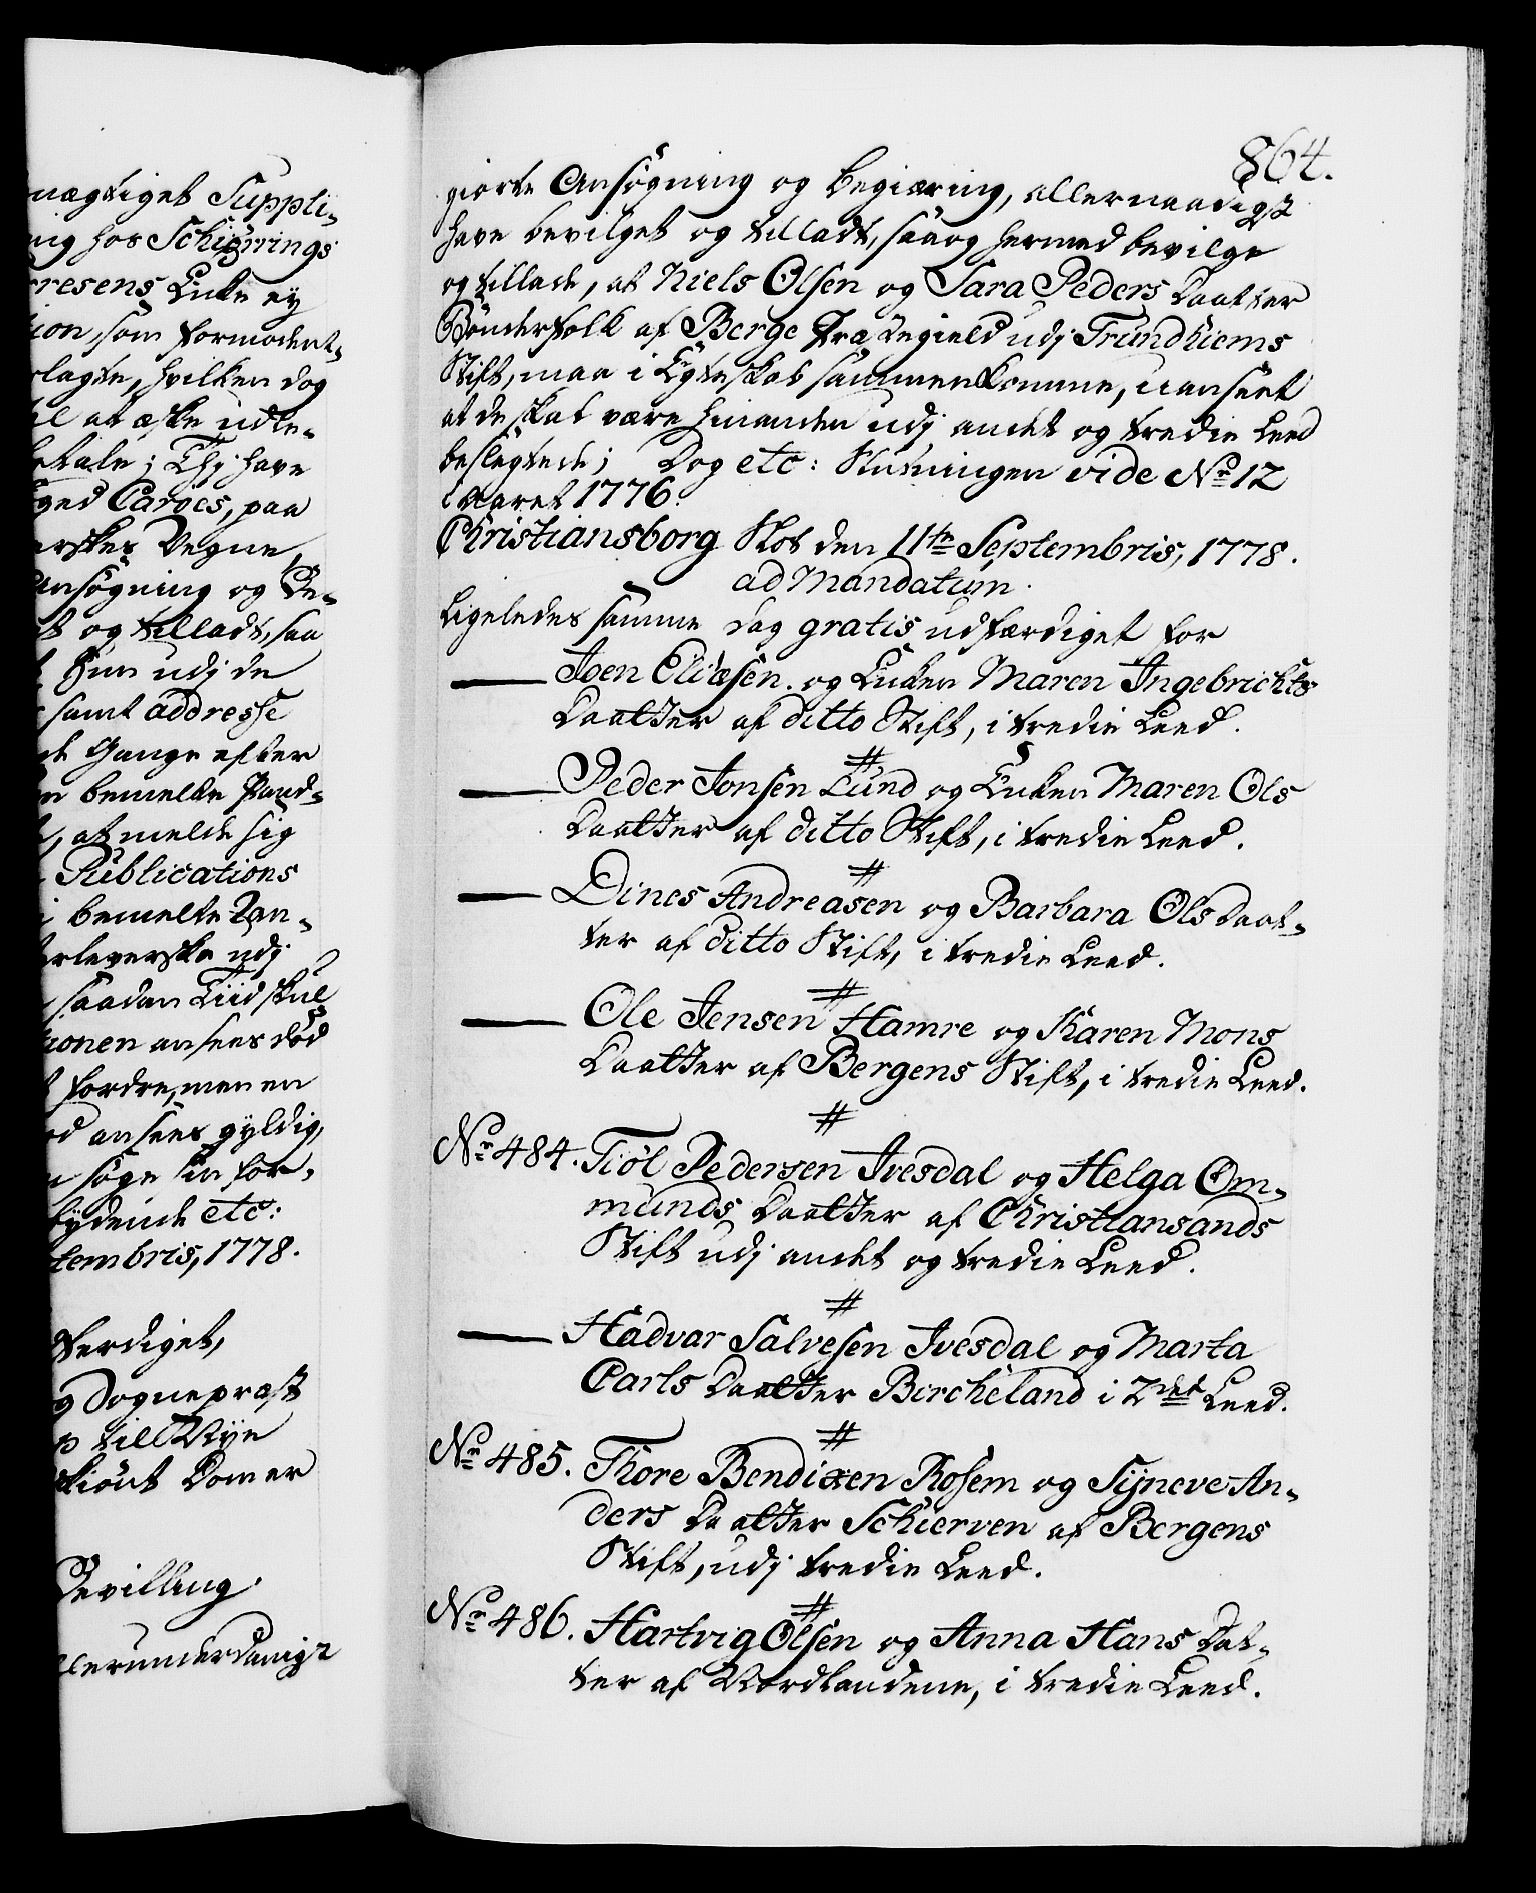 nægtiget Suppli-
nig hos Schiørrings
rresens Enke ey
tion, som formodent-
rlagte, hvilken dog
el at æske udle-
betale; Thi have
ged Caroes, paa
erskes Vegne,
Ansøgning og Be-
st og tilladt, saa
t hun udj de
samt addresse
de Gange efter
n bemelte Pand-
, at melde sig
Publications
i bemelte Pan-
erleverske udj
saadan Tiid skul
tionen ansees død
t fordre, men en
ed ansees gyldig,
søge sin for-
bydende etc:
tembris, 1778.
færdiget,
g Sognepræst
p till Wije
skiønt Dom er
Bevilling.
llerunderdanigst
864.
giorte Ansøgning og begiæring, allernaadigst
have bevilget og tilladt, saa og hermed bevilge
og tillade, at Niels Olsen og Sara Peders Daatter
Bønderfolk af Berge Præstegield udj Trundhiems
Stift, maa i Egteskab sammenkomme, uanseet
at de skal være hinanden udj andet og tredie Leed
beslegtede; Dog etc: Slutningen vide No. 12
i Aaret 1776.
Christiansborg Slot den 11te Septembris, 1778.
ad Mandatum.
Ligeledes samme dag gratis udfærdiget for
— Joen Eliæsen og Enken Maren Ingebrichts
Daatter af ditto Stift, i tredie Leed.
#
— Peder Jonsen Lund og Enken Maren Ols
Daatter af ditto Stift, i tredie Leed.
#
— Dines Andreasen og Barbara Ols Daat-
ter af ditto Stift, i tredie Leed.
#
— Ole Jensen Hamre og Karen Mons
Daatter af Bergens Stift, i tredie Leed.
#
No. 484. Tiøl Pedersen Ivesdal og Helga Om-
munds Daatter af Christiansands
Stift udj andet og tredie Leed.
#
— Hadvar Salvesen Ivesdal og Marta
Carls Daatter Bircheland i 2det Leed.
#
No. 485. Thore Bendixen Rosem og Syneve An-
ders Daatter Schierven af Bergens
Stift, udj tredie Leed.
#
No. 486. Hartvig Olsen og Anna Hans Dat-
ter af Nordlandene, i tredie Leed.